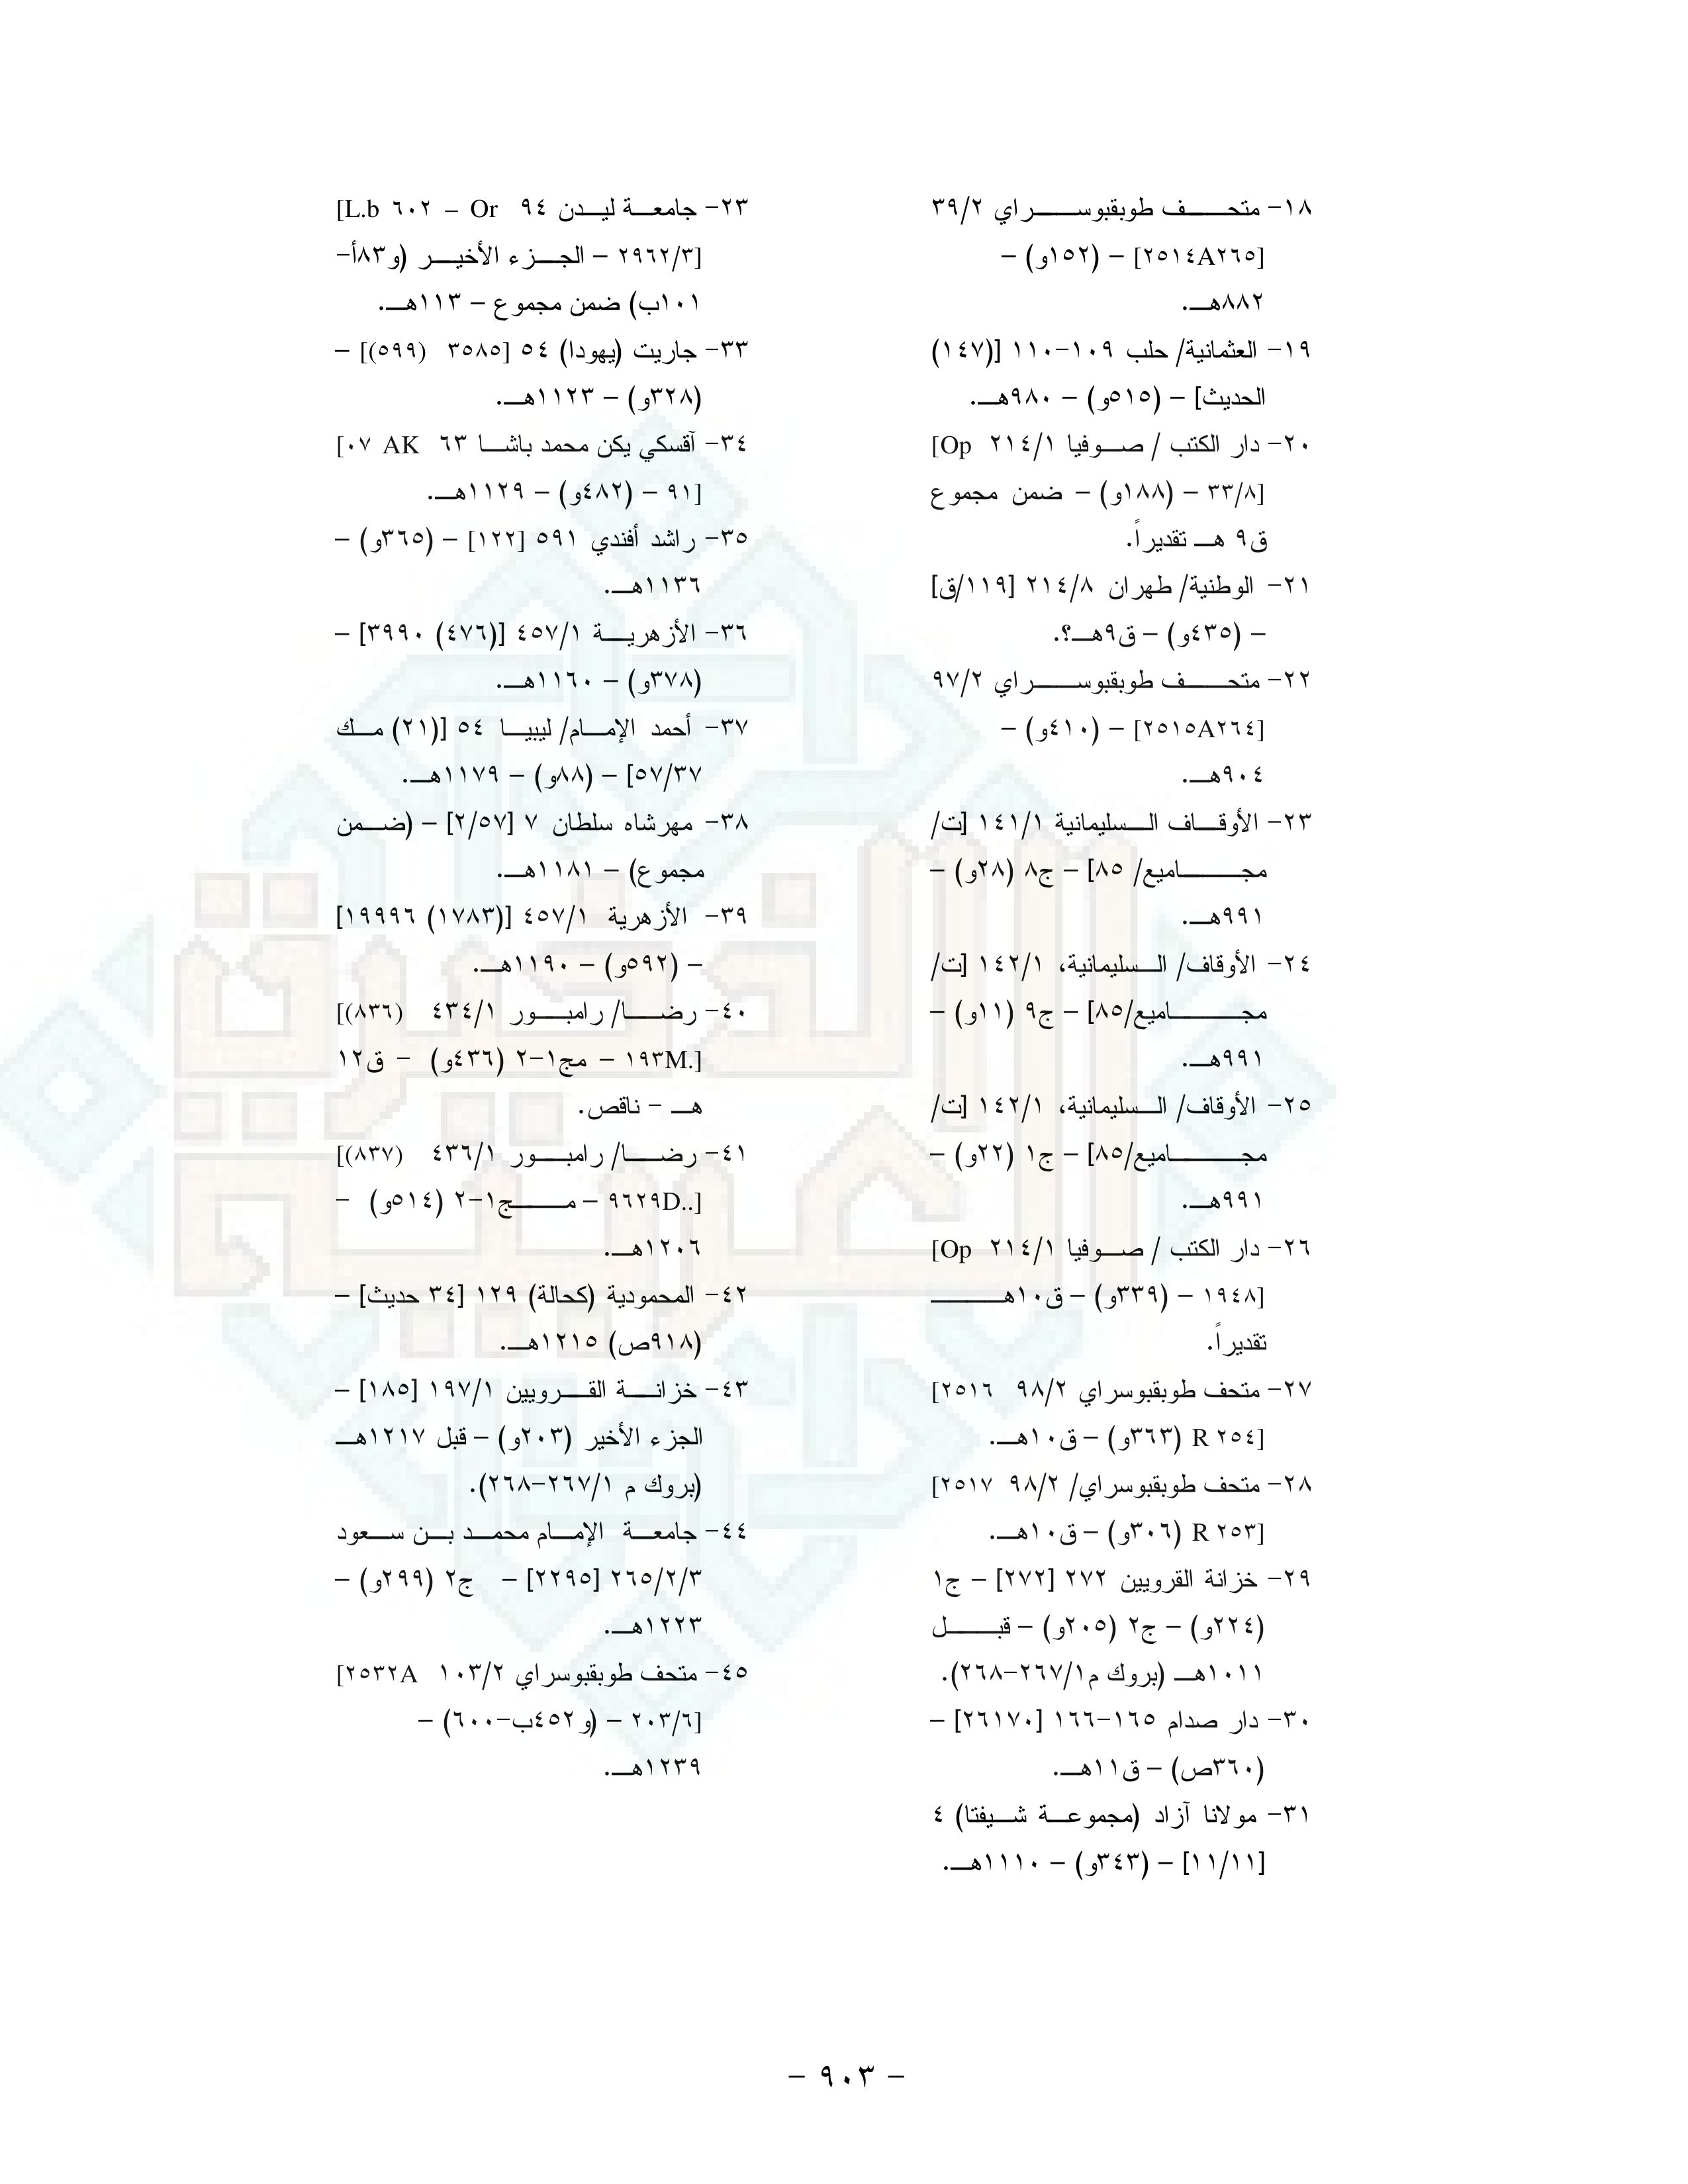 ١٨- متحف طوبقبوسراي ٣٩/٢
[٢٥١٤A٢٦٥] – (١٥٢و) –
٨٨٢هـ.
١٩- العثمانية/ حلب ١٠٩-١١٠ [(١٤٧)
الحديث] – (٥١٥و) – ٩٨٠هـ.
٢٠- دار الكتب / صوفيا ٢١٤/١ [Op
٣٣/٨] – (١٨٨و) – ضمن مجموع
ق٩ هـ تقديراً.
٢١- الوطنية/ طهران ٢١٤/٨ [١١٩/ق]
– (٤٣٥و) – ق٩هـ؟.
٢٢- متحف طوبقبوسراي ٩٧/٢
[٢٥١٥A٢٦٤] – (٤١٠و) –
٩٠٤هـ.
٢٣- الأوقاف السليمانية ١٤١/١ [ت/
مجاميع/ ٨٥] – ج٨ (٢٨و) –
٩٩١هـ.
٢٤- الأوقاف/ السليمانية، ١٤٢/١ [ت/
مجاميع/٨٥] – ج٩ (١١و) –
٩٩١هـ.
٢٥- الأوقاف/ السليمانية، ١٤٢/١ [ت/
مجاميع/٨٥] – ج١ (٢٢و) –
٩٩١هـ.
٢٦- دار الكتب / صوفيا ٢١٤/١ [Op
١٩٤٨] – (٣٣٩و) – ق١٠هـ
تقديراً.
٢٧- متحف طوبقبوسراي ٩٨/٢ [٢٥١٦
R ٢٥٤] (٣٦٣و) – ق١٠هـ.
٢٨- متحف طوبقبوسراي/ ٩٨/٢ [٢٥١٧
R ٢٥٣] (٣٠٦و) – ق١٠هـ.
٢٩- خزانة القرويين ٢٧٢ [٢٧٢] – ج١
(٢٢٤و) – ج٢ (٢٠٥و) – قبل
١٠١١هـ (بروك م٢٦٧/١-٢٦٨).
٣٠- دار صدام ١٦٥-١٦٦ [٢٦١٧٠] –
(٣٦٠ص) – ق١١هـ.
٣١- مولانا آزاد (مجموعة شيفتا) ٤
[١١/١١] – (٣٤٣و) – ١١١٠هـ.
٢٣- جامعة ليدن ٩٤ L.b ٦٠٢ – Or]
٢٩٦٢/٣] – الجزء الأخير (و٨٣أ-
١٠١ب) ضمن مجموع – ١١٣هـ.
٣٣- جاريت (يهودا) ٥٤ [٣٥٨٥ (٥٩٩)] –
(٣٢٨و) – ١١٢٣هـ.
٣٤- آقسكي يكن محمد باشا ٦٣ [٠٧ AK
٩١] – (٤٨٢و) – ١١٢٩هـ.
٣٥- راشد أفندي ٥٩١ [١٢٢] – (٣٦٥و) –
١١٣٦هـ.
٣٦- الأزهرية ٤٥٧/١ [(٤٧٦) ٣٩٩٠] –
(٣٧٨و) – ١١٦٠هـ.
٣٧- أحمد الإمام/ ليبيا ٥٤ [(٢١) مك
٥٧/٣٧] – (٨٨و) – ١١٧٩هـ.
٣٨- مهرشاه سلطان ٧ [٢/٥٧] – (ضمن
مجموع) – ١١٨١هـ.
٣٩- الأزهرية ٤٥٧/١ [(١٧٨٣) ١٩٩٩٦]
– (٥٩٢و) – ١١٩٠هـ.
٤٠- رضا/ رامبور ٤٣٤/١ [(٨٣٦)
١٩٣M.] – مج١-٢ (٤٣٦و) – ق١٢
هـ – ناقص.
٤١- رضا/ رامبور ٤٣٦/١ [(٨٣٧)
٩٦٢٩D..] – مج١-٢ (٥١٤و) –
١٢٠٦هـ.
٤٢- المحمودية (كحالة) ١٢٩ [٣٤ حديث] –
(٩١٨ص) ١٢١٥هـ.
٤٣- خزانة القرويين ١٩٧/١ [١٨٥] –
الجزء الأخير (٢٠٣و) – قبل ١٢١٧هـ
(بروك م ٢٦٧/١-٢٦٨).
٤٤- جامعة الإمام محمد بن سعود
٢٦٥/٢/٣ [٢٢٩٥] – ج٢ (٢٩٩و) –
١٢٢٣هـ.
٤٥- متحف طوبقبوسراي ١٠٣/٢ [٢٥٣٢A
٢٠٣/٦] – (و٤٥٢ب-٦٠٠) –
١٢٣٩هـ.
– ٩٠٣ –